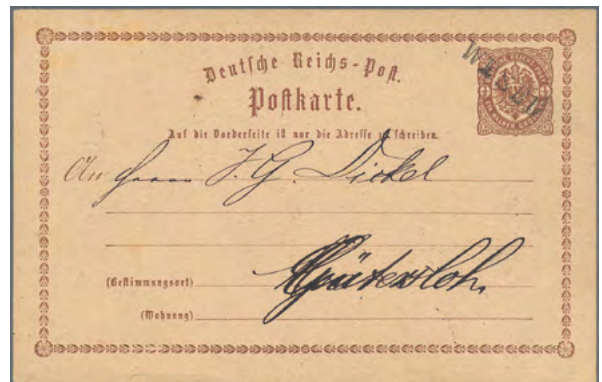 Deutsche Reichs-Post.
Postkarte.
Auf die Vorderseite ist nur die Adresse zu schreiben.
An Herrn J. G. Dickel
Gütersloh.
(Bestimmungsort)
(Wohnung)